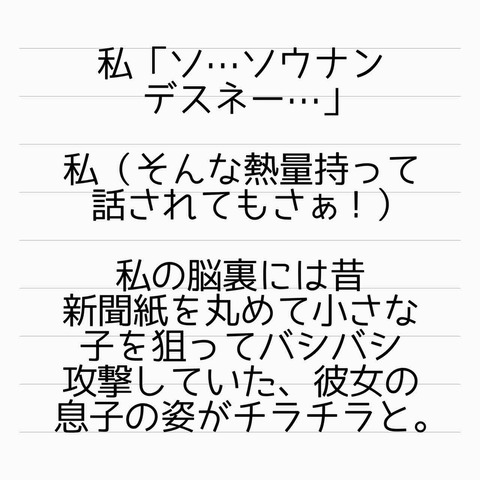 私「ソ…ソウナン
デスネー…」
私（そんな熱量持って
話されてもさぁ！）
私の脳裏には昔
新聞紙を丸めて小さな
子を狙ってバシバシ
攻撃していた、彼女の
息子の姿がチラチラと。